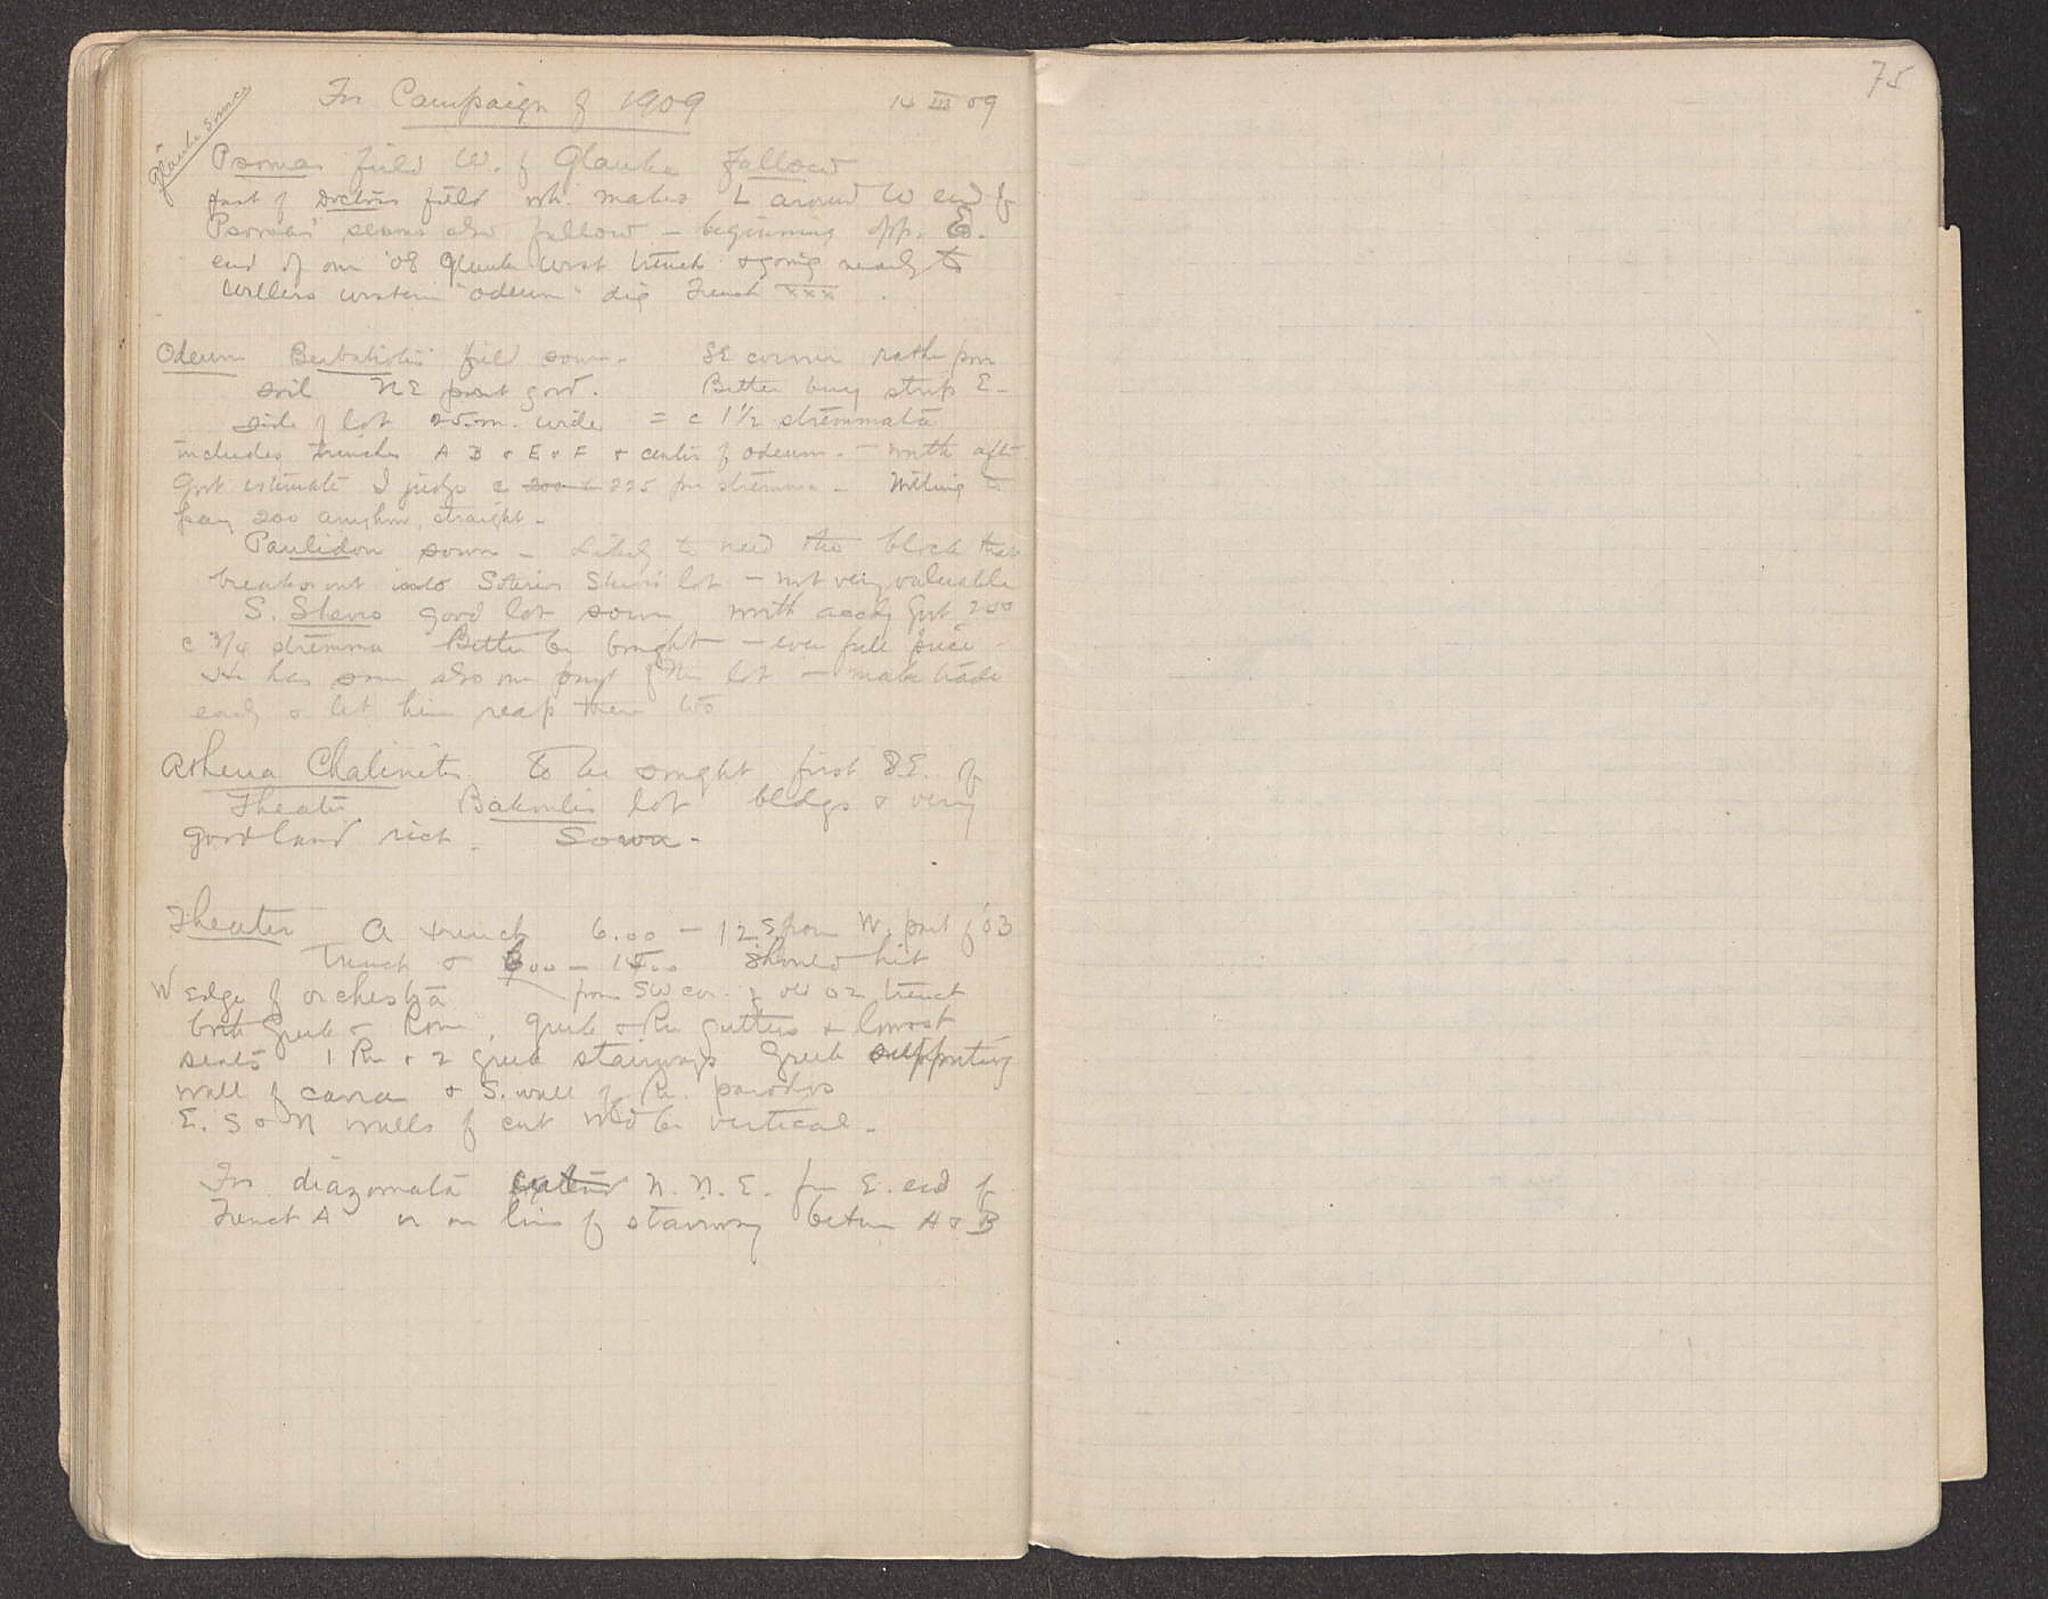 For Campaign of 1909 14 III 09
Glauke Sources
Psomas field W. of Glauke fallow
part of Doctors field wh. makes L around W end of
Psomas' seems also fallow – beginning opp. E.
end of our '08 Glauke West trench & going nearly to
western "odeum" dig Trench XXX.
Odeum field sown. SE corner rather poor
soil NE part good. Better buy strip E–
side of lot 25.m. wide = c 1½ stremmata
includes trenches A B & E & F & center of odeum. – worth after
Govt estimate I judge c 200 225 per stremma – Willing to
pay 200 anyhow, straight –
Paulidon sown – Likely to need the block that
breaks out into Soterios lot – not very valuable
S. good lot sown worth accdg Govt 200
c ¾ stremma Better be bought – even full price –
He has sown also our part of the lot – make trade
early & let him reap there too
Athena Chalinitis to be sought first S.E. of
Theater lot bldgs & very
good land rich. Sown –
Theater A trench 6.00 – 12 S from W. part of '03
Trench & 6.00 – 15.00 should hit
W edge of orchestra from SW cor. of old 02 trench
both Greek & Rom, Greek & Rn gutters & lowest
seats 1 Rn & 2 Greek stairways Greek supporting
wall of cavea & S. wall of Rn. parodos
E. S & N walls of cut wd be vertical –
For diazomata extend N.N.E. from E. end of
Trench A or on line of stairway between A & B
75